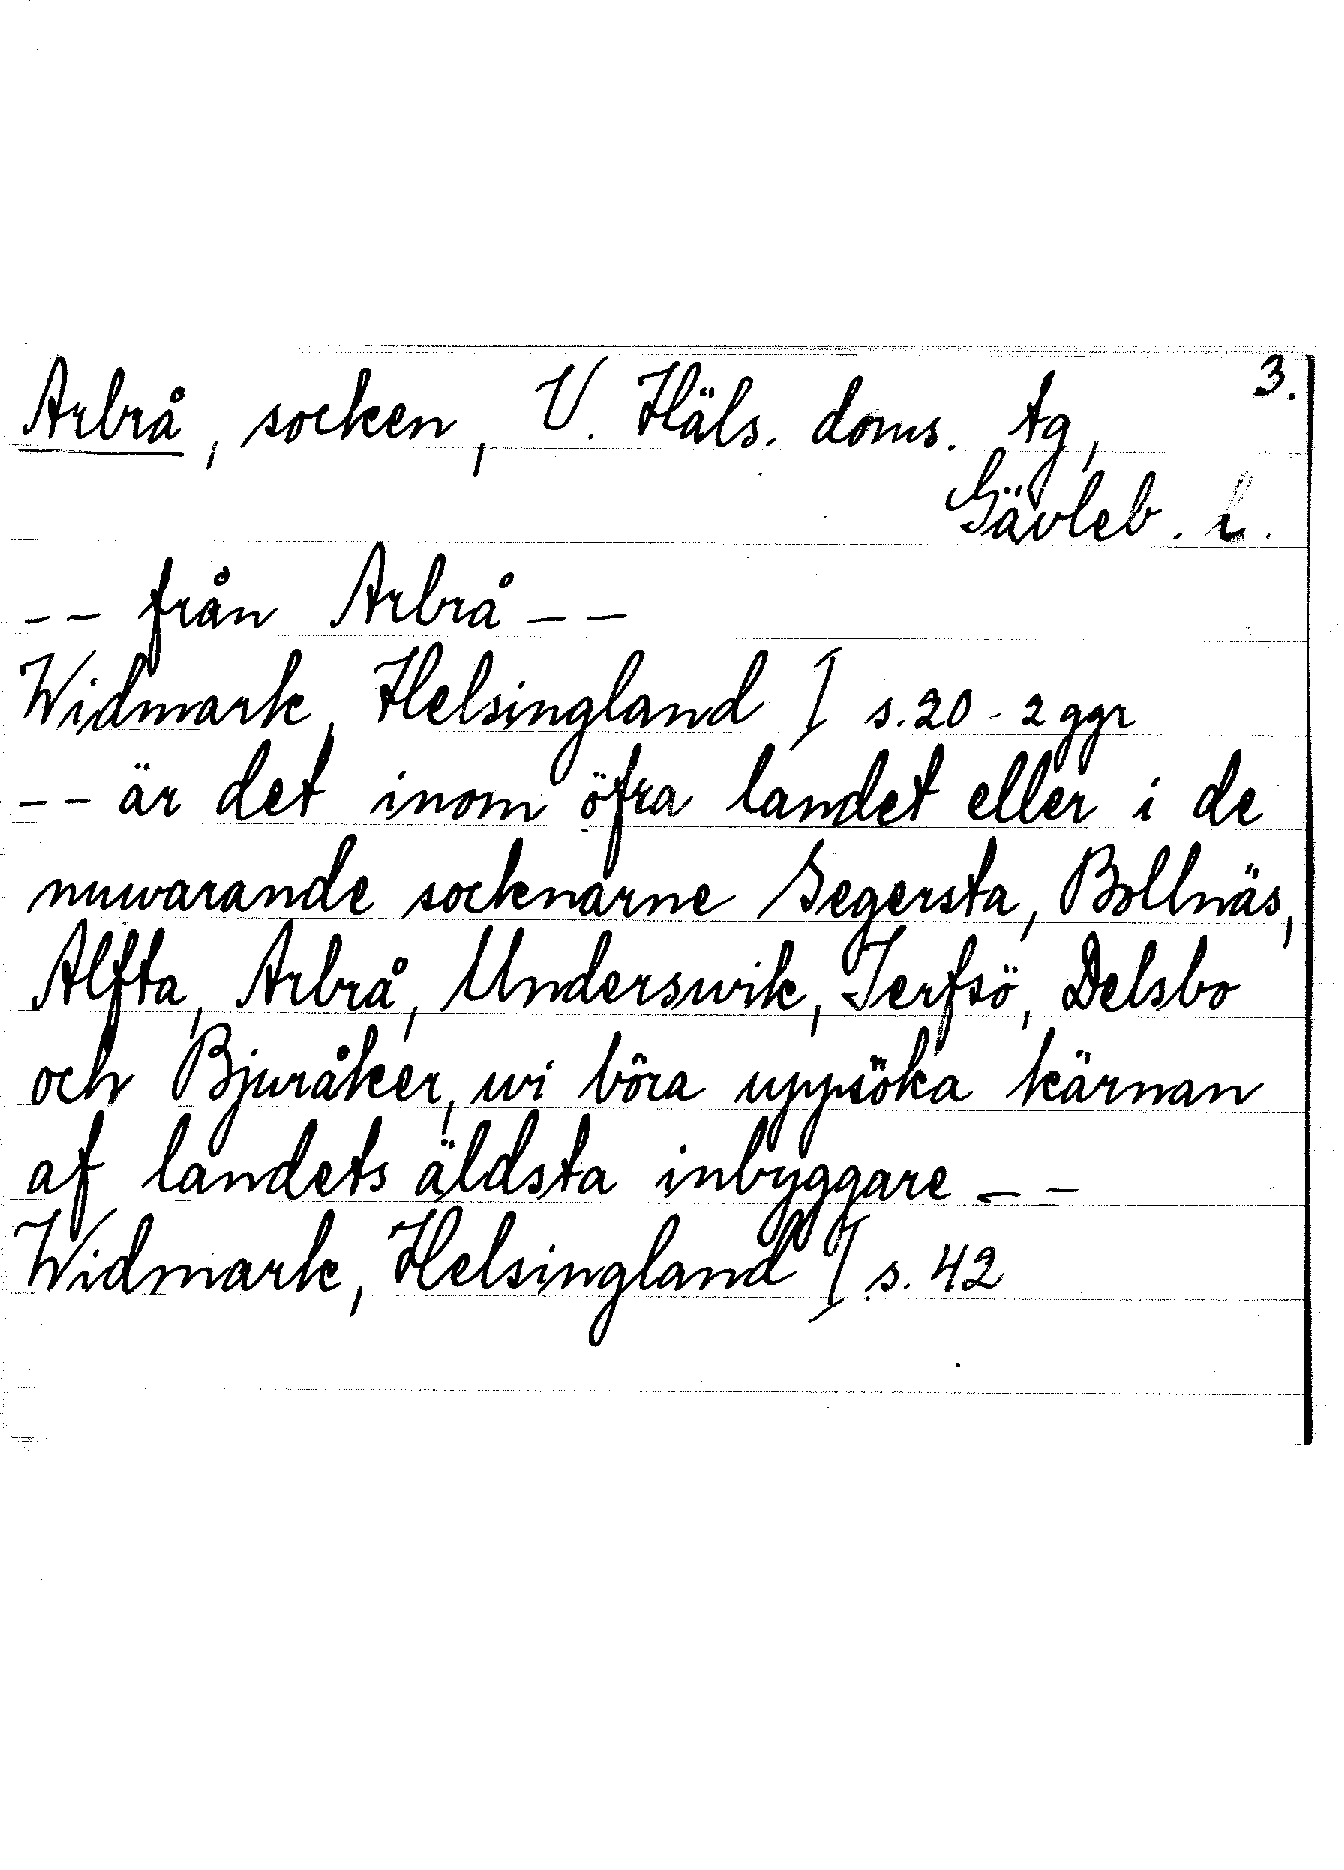 3.
Arbrå, socken, V. Häls. doms. tg,
Gävleb. l.
-- från Arbrå --
Widmark, Helsingland I s. 20 - 2 ggr
-- är det inom öfra landet eller i de
nuwarande socknarne Segersta, Bollnäs,
Alfta, Arbrå, Underswik, Jerfsö, Delsbo
och Bjuråker, wi böra uppsöka kärnan
af landets äldsta inbyggare --
Widmark, Helsingland I s. 42